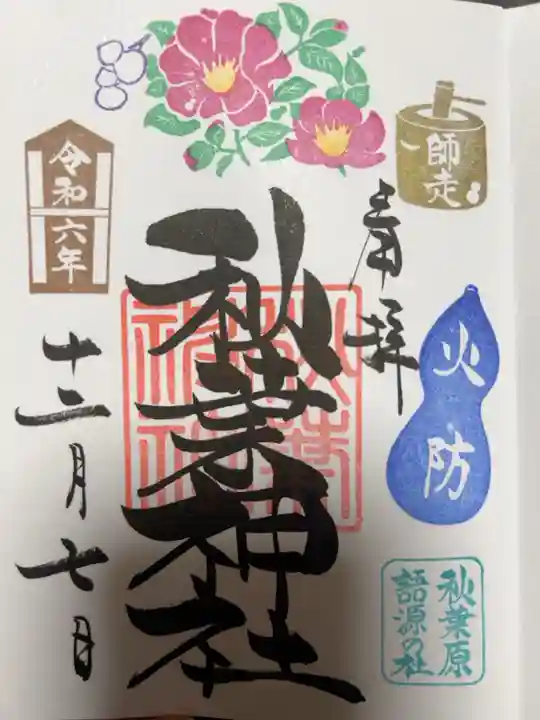 師走
奉拝
火防
秋葉原
語源の社
秋葉神社
秋葉
神社
令和六年
十二月七日